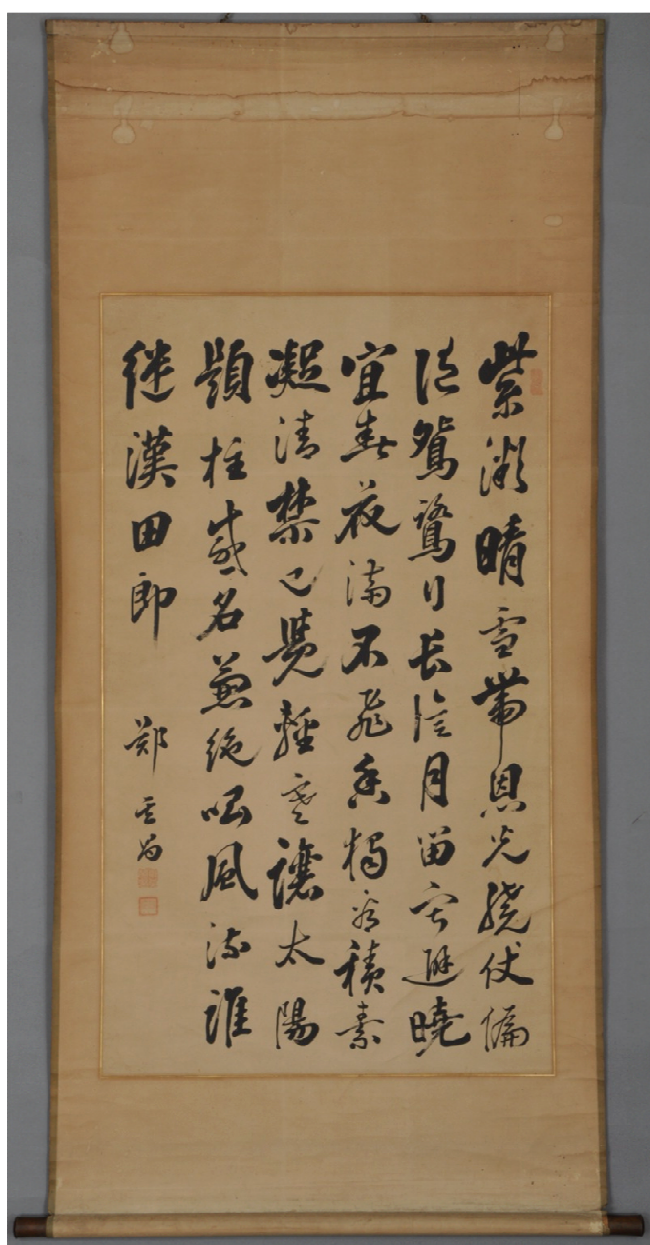 紫微晴雪帶恩光繞仗偏
隨鴛鷺行長信月留寧避曉
宜春花滿不飛香獨看積素
凝清禁已覺輕寒讓太陽
題柱盛名兼絕唱風流誰
繼漢田郎
鄭